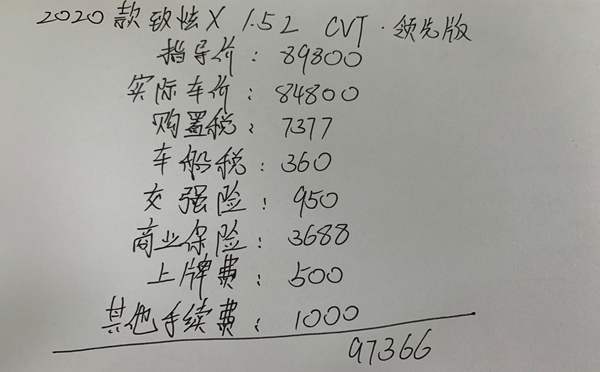 2020款致炫X 1.5L CVT·领先版
指导价：89800
实际车价：84800
购置税：7377
车船税：360
交强险：950
商业保险：3688
上牌费：500
其他手续费：1000
97366